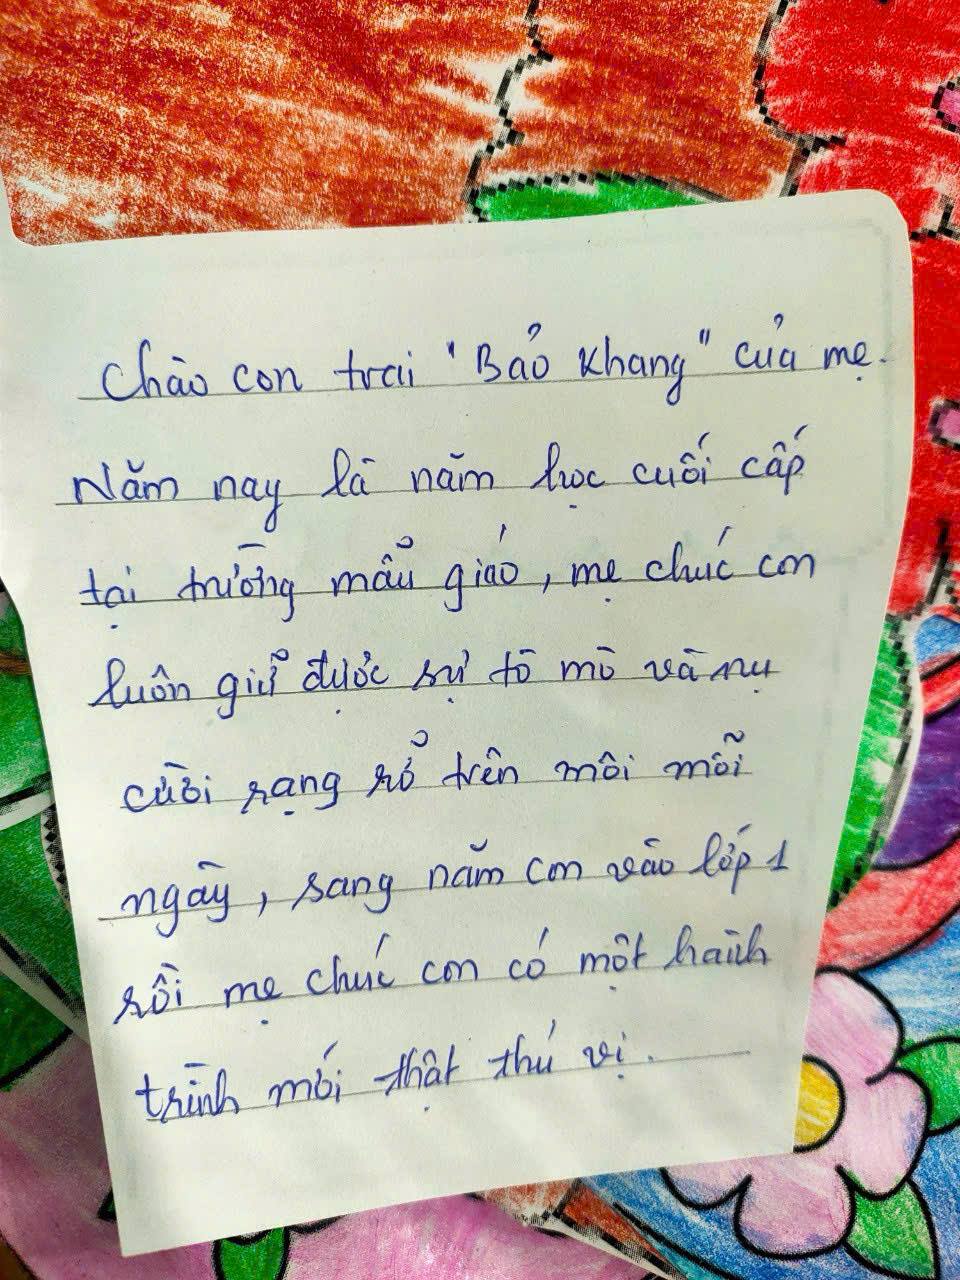 Chào con trai "Bảo Khang" của mẹ.
Năm nay là năm học cuối cấp
tại trường mẫu giáo, mẹ chúc con
luôn giữ được sự tò mò và nụ
cười rạng rỡ trên môi mỗi
ngày, sang năm con vào lớp 1
rồi mẹ chúc con có một hành
trình mới thật thú vị.